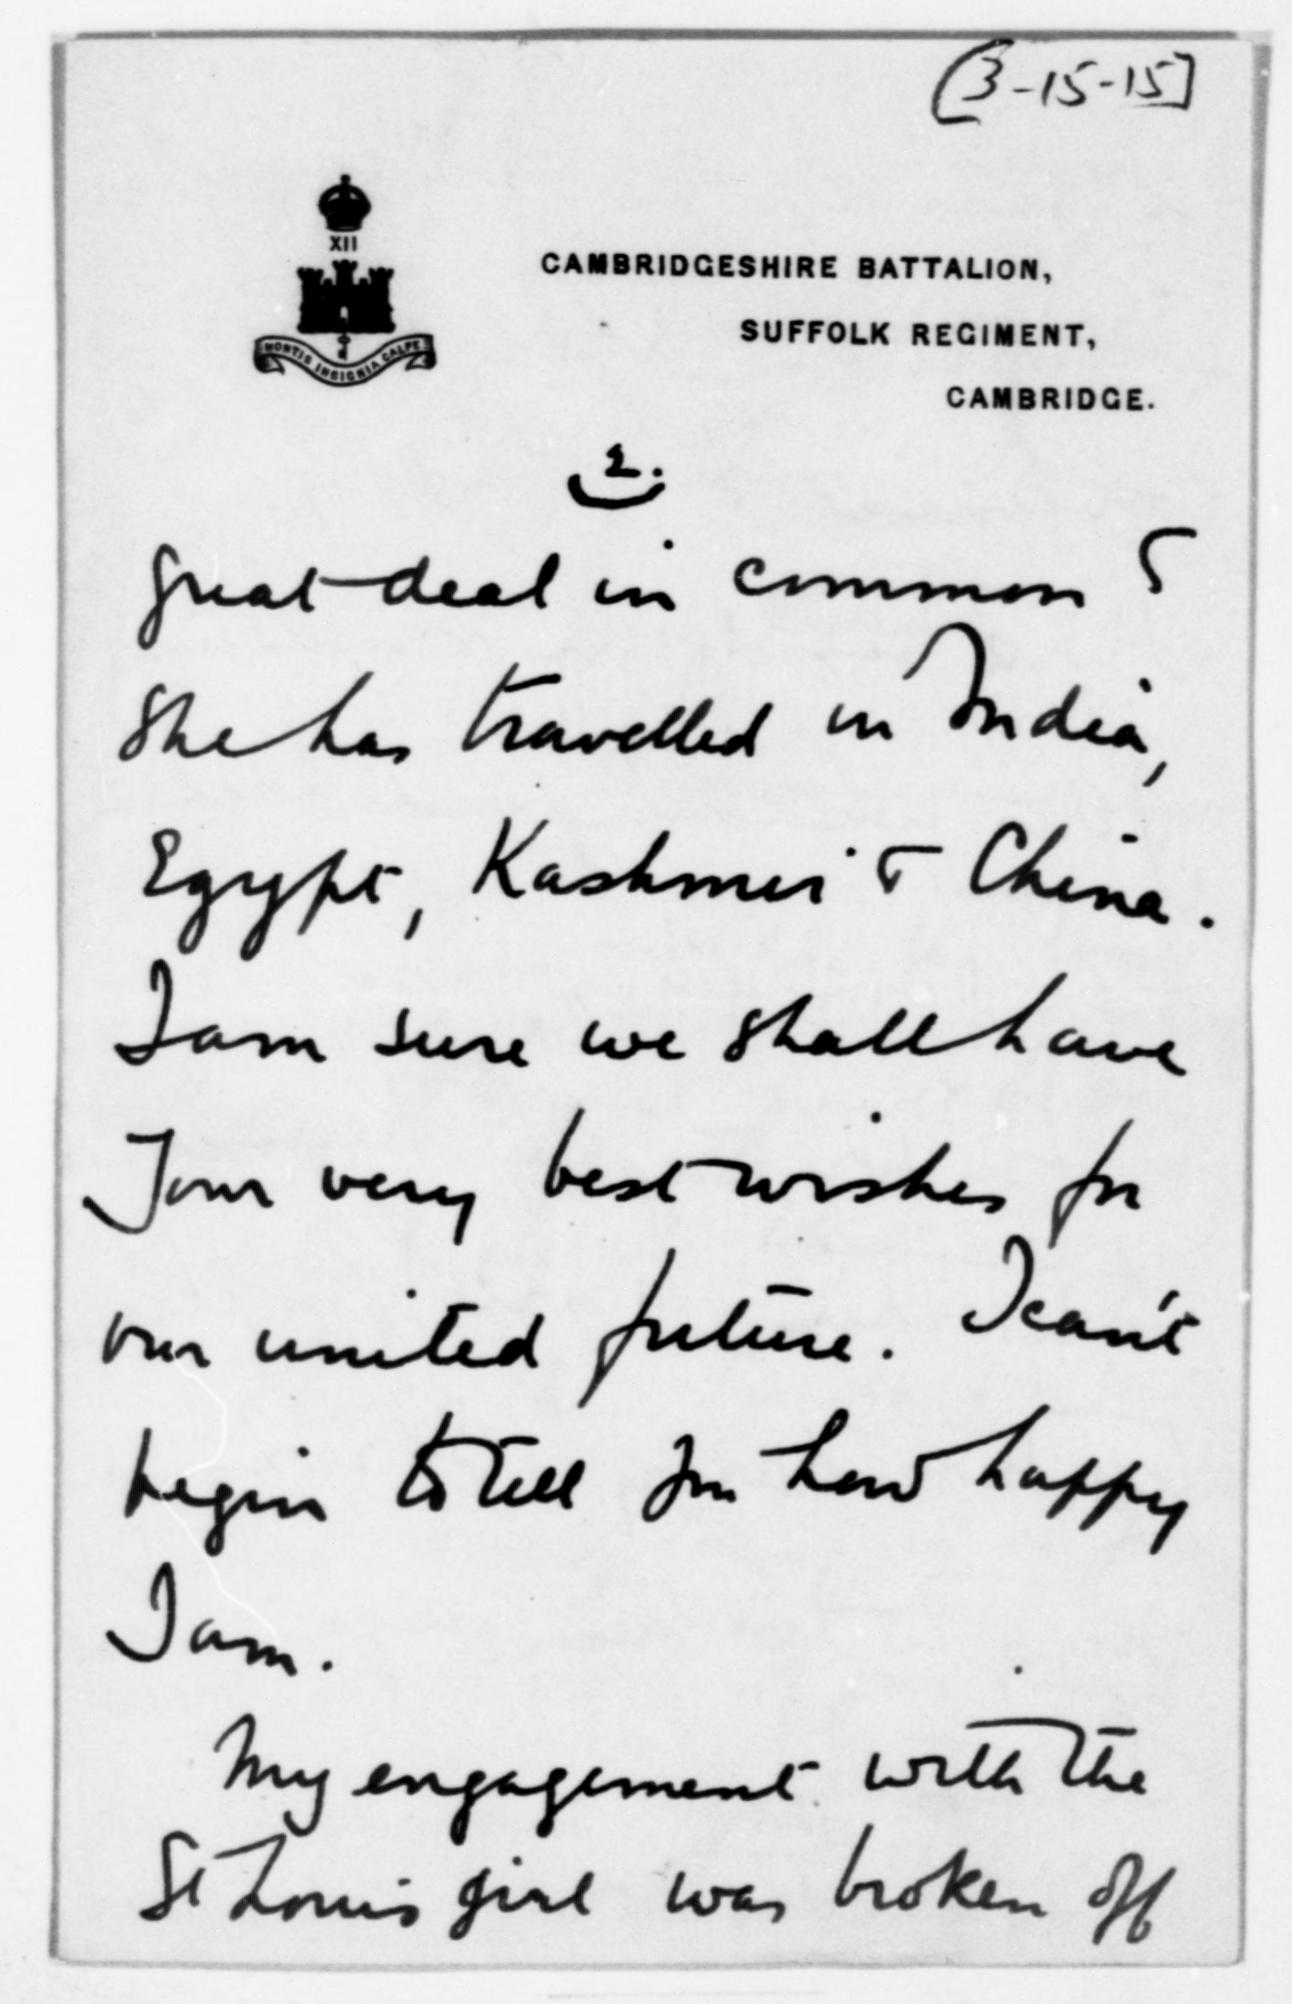 [3-15-15]
XII
MONTIS INSIGNIA CALPE
CAMBRIDGESHIRE BATTALION,
SUFFOLK REGIMENT,
CAMBRIDGE.
2.
great deal in common &
she has travelled in India,
Egypt, Kashmir & China.
I am sure we shall have
Your very best wishes for
our united future. I can't
begin to tell you how happy
I am.
My engagement with the
St Louis girl was broken off